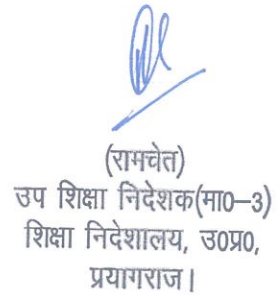 (रामचेत)
उप शिक्षा निदेशक(मा0–3)
शिक्षा निदेशालय, उ0प्र0,
प्रयागराज।